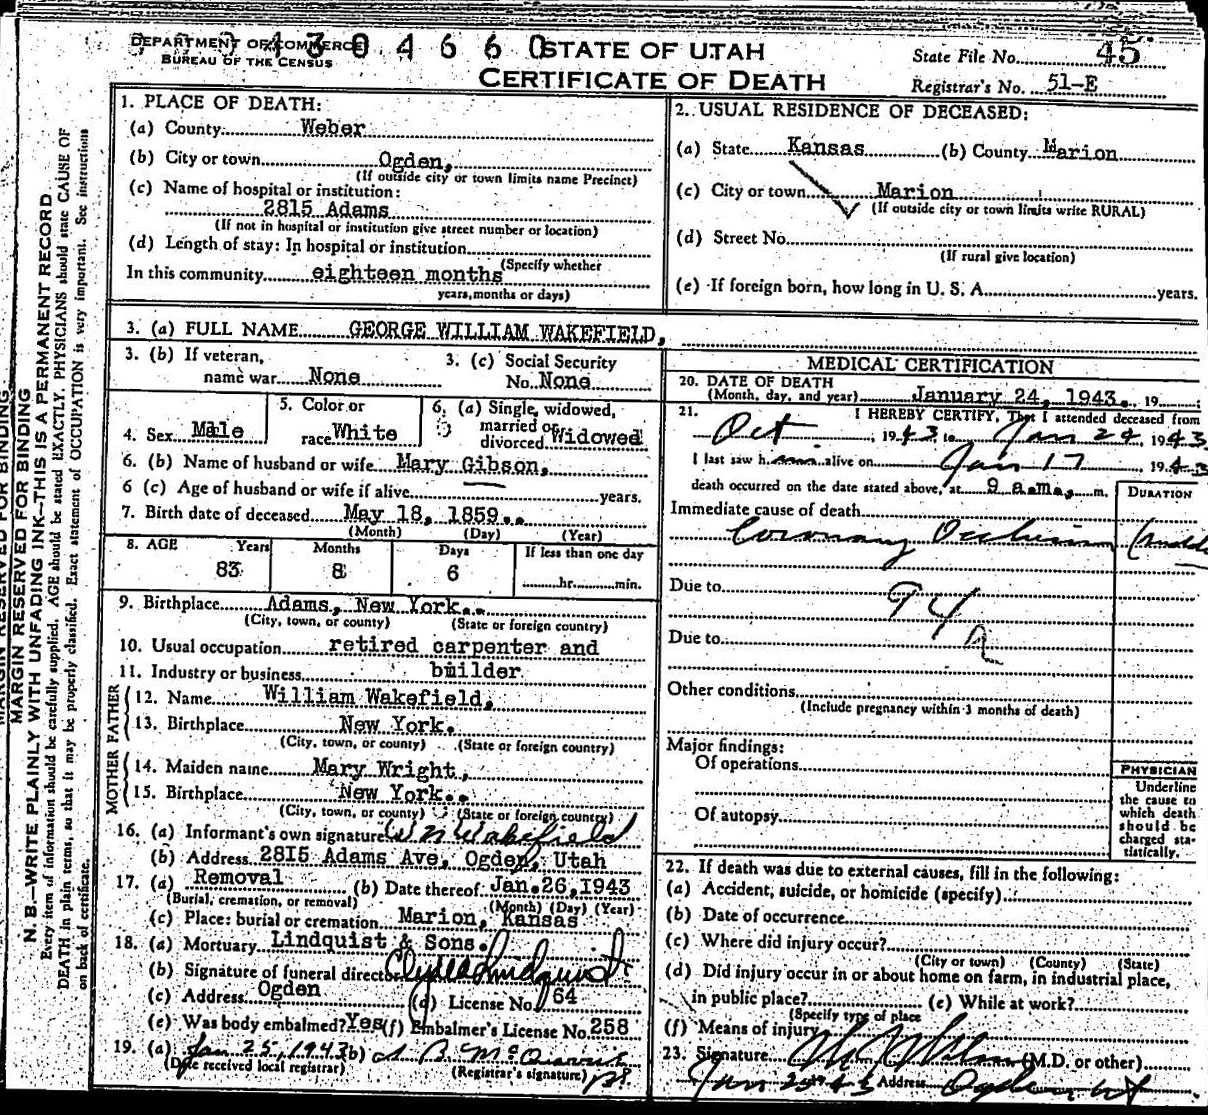 DEPARTMENT OF COMMERCE
BUREAU OF THE CENSUS
4 3 0 4 6 6 0
STATE OF UTAH
CERTIFICATE OF DEATH
State File No. 45
Registrar's No. 51-E
MARGIN RESERVED FOR BINDING
N. B.—WRITE PLAINLY WITH UNFADING INK—THIS IS A PERMANENT RECORD
Every item of information should be carefully supplied. AGE should be stated EXACTLY. PHYSICIANS should state CAUSE OF
DEATH in plain terms, so that it may be properly classified. Exact statement of OCCUPATION is very important. See instructions
on back of certificate.
1. PLACE OF DEATH:
(a) County Weber
(b) City or town Ogden,
(If outside city or town limits name Precinct)
(c) Name of hospital or institution:
2815 Adams
(If not in hospital or institution give street number or location)
(d) Length of stay: In hospital or institution
(Specify whether
In this community eighteen months
years, months or days)
2. USUAL RESIDENCE OF DECEASED:
(a) State Kansas (b) County Marion
(c) City or town Marion
(If outside city or town limits write RURAL)
(d) Street No.
(If rural give location)
(e) If foreign born, how long in U. S. A. years.
3. (a) FULL NAME GEORGE WILLIAM WAKEFIELD,
3. (b) If veteran, name war None
3. (c) Social Security No. None
4. Sex Male
5. Color or race White
6. (a) Single, widowed, married or divorced Widowed
6. (b) Name of husband or wife Mary Gibson,
6 (c) Age of husband or wife if alive years.
7. Birth date of deceased May 18, 1859..
(Month) (Day) (Year)
8. AGE Years Months Days If less than one day
83 8 6 hr. min.
9. Birthplace Adams, New York..
(City, town, or county) (State or foreign country)
10. Usual occupation retired carpenter and
11. Industry or business builder.
FATHER
12. Name William Wakefield,
13. Birthplace New York.
(City, town, or county) (State or foreign country)
MOTHER
14. Maiden name Mary Wright,
15. Birthplace New York..
(City, town, or county) (State or foreign country)
16. (a) Informant's own signature W N Wakefield
(b) Address 2815 Adams Ave, Ogden, Utah
17. (a) Removal (b) Date thereof Jan. 26, 1943
(Burial, cremation, or removal) (Month) (Day) (Year)
(c) Place: burial or cremation Marion, Kansas
18. (a) Mortuary Lindquist & Sons.
(b) Signature of funeral director Clyde Lindquist
(c) Address Ogden (d) License No. 64
(e) Was body embalmed? Yes (f) Embalmer's License No. 258
19. (a) Jan 25, 1943 (b)
(Date received local registrar) (Registrar's signature)
MEDICAL CERTIFICATION
20. DATE OF DEATH
(Month, day, and year) January 24, 1943. 19
21. I HEREBY CERTIFY, That I attended deceased from
Oct, 1943 to Jan 24, 1943
I last saw him alive on Jan 17, 1943
death occurred on the date stated above, at 9 a.m. m.
DURATION
Immediate cause of death
Coronary Occlusion
Due to 94
a
Due to
Other conditions
(Include pregnancy within 3 months of death)
Major findings:
Of operations
Of autopsy
PHYSICIAN
Underline
the cause to
which death
should be
charged sta-
tistically.
22. If death was due to external causes, fill in the following:
(a) Accident, suicide, or homicide (specify)
(b) Date of occurrence
(c) Where did injury occur?
(City or town) (County) (State)
(d) Did injury occur in or about home on farm, in industrial place,
in public place? (e) While at work?
(Specify type of place
(f) Means of injury
23. Signature (M.D. or other)
Jan 25 1943 Address Ogden Ut